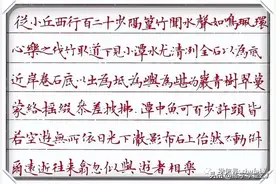 從小丘西行百二十步隔篁竹聞水聲如鳴珮環
心樂之伐竹取道下見小潭水尤清洌全石以為底
近岸卷石底以出為坻為嶼為嵁為巖青樹翠蔓
蒙絡搖綴參差披拂潭中魚可百許頭皆
若空遊無所依日光下澈影布石上佁然不動俶
爾遠逝往來翕忽似與遊者相樂